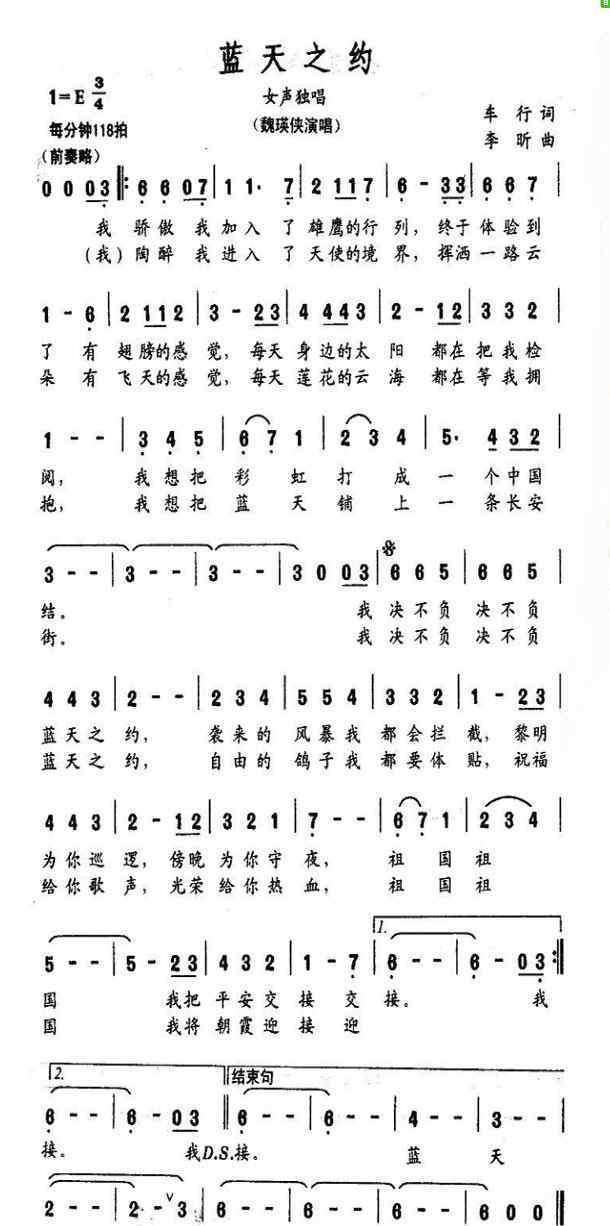 蓝天之约
1=E 3/4
女声独唱
每分钟118拍
(魏瑛侠演唱)
车 行 词
李 昕 曲
(前奏略)
0 0 03 |: 6 6 07 | 1 1· 7 | 2 117 | 6 - 33 | 6 6 7 |
我 骄傲 我加入 了 雄鹰的行 列, 终于体验到
(我)陶醉 我进入 了 天使的境 界, 挥洒一路云
1 - 6 | 2 112 | 3 - 23 | 4 443 | 2 - 12 | 3 3 2 |
了 有 翅膀的感 觉, 每天 身边的太 阳 都在 把我检
朵 有 飞天的感 觉, 每天 莲花的云 海 都在 等我拥
1 - - | 3 4 5 | 6 7 1 | 2 3 4 | 5· 4 32 |
阅, 我想把 彩 虹 打 成 一 个中国
抱, 我想把 蓝 天 铺 上 一 条长安
3 - - | 3 - - | 3 - - | 3 0 03 | 6 6 5 | 6 6 5 |
结。 我 决不负 决不负
街。 我 决不负 决不负
4 4 3 | 2 - - | 2 3 4 | 5 5 4 | 3 3 2 | 1 - 23 |
蓝天之 约, 袭来的 风暴我 都会拦 截, 黎明
蓝天之 约, 自由的 鸽子我 都要体 贴, 祝福
4 4 3 | 2 - 12 | 3 2 1 | 7 - - | 6 7 1 | 2 3 4 |
为你巡 逻, 傍晚 为你守 夜, 祖 国 祖
给你歌 声, 光荣 给你热 血, 祖 国 祖
1.
5 - - | 5 - 23 | 4 3 2 | 1 - 7 | 6 - - | 6 - 03 :|
国 我把 平安交 接 交 接。 我
国 我将 朝霞迎 接 迎
2. 结束句
6 - - | 6 - 03 || 6 - - | 6 - - | 4 - - | 3 - - |
接。 我D.S.接。 蓝 天
2 - - | 2 - 3 | 6 - - | 6 - - | 6 - - | 6 0 0 |